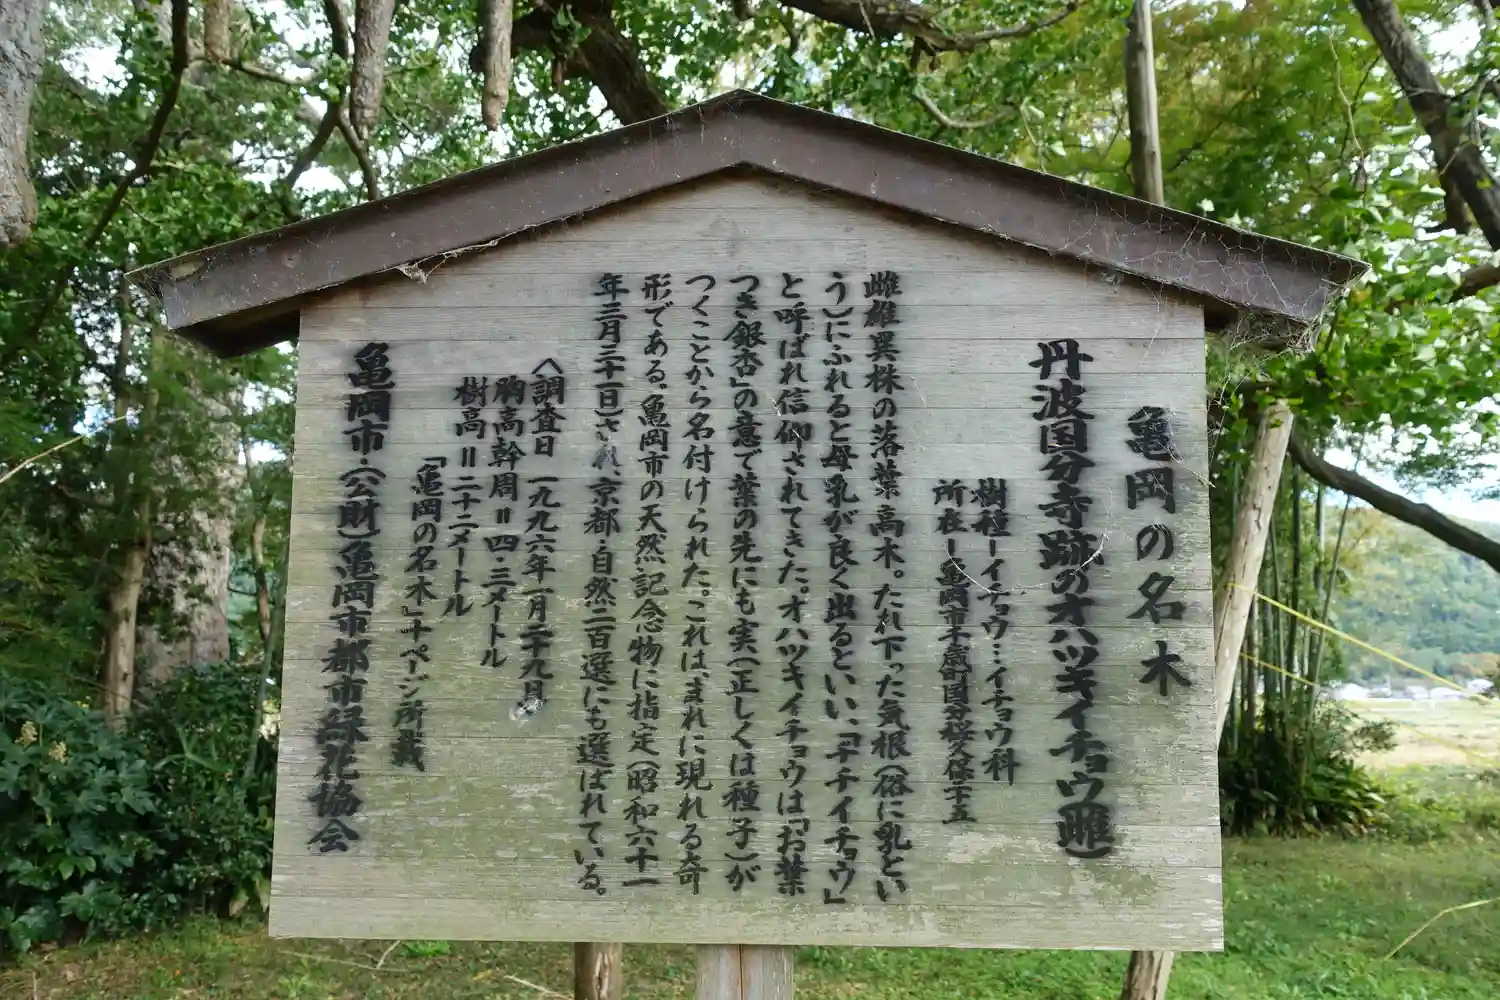 亀岡の名木
丹波国分寺跡のオハツキイチョウ(雌)
樹種−イチョウ…イチョウ科
所在−亀岡市千歳町国分桜久保二十五
雌雄異株の落葉高木。たれ下った気根(俗に乳とい
う)にふれると母乳が良く出るといい、「チチイチョウ」
と呼ばれ信仰されてきた。オハツキイチョウは「お葉
つき銀杏」の意で葉の先にも実(正しくは種子)が
つくことから名付けられた。これは、まれに現れる奇
形である。亀岡市の天然記念物に指定(昭和六十一
年三月三十一日)され、京都の自然二百選にも選ばれている。
〈調査日 一九九六年一月二十九日〉
胸高幹周=四・三メートル
樹高=二十二メートル
「亀岡の名木」十ページ所載
亀岡市・(公財)亀岡市都市緑花協会